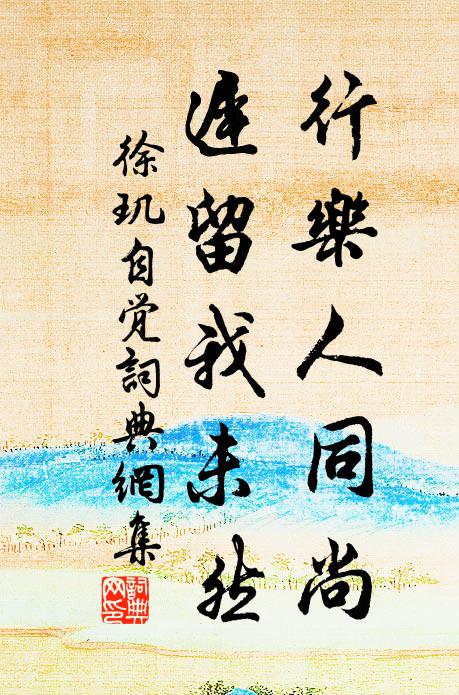 行樂人同尚
遲留我未然
徐玑自觉詞典網集
詞典网印